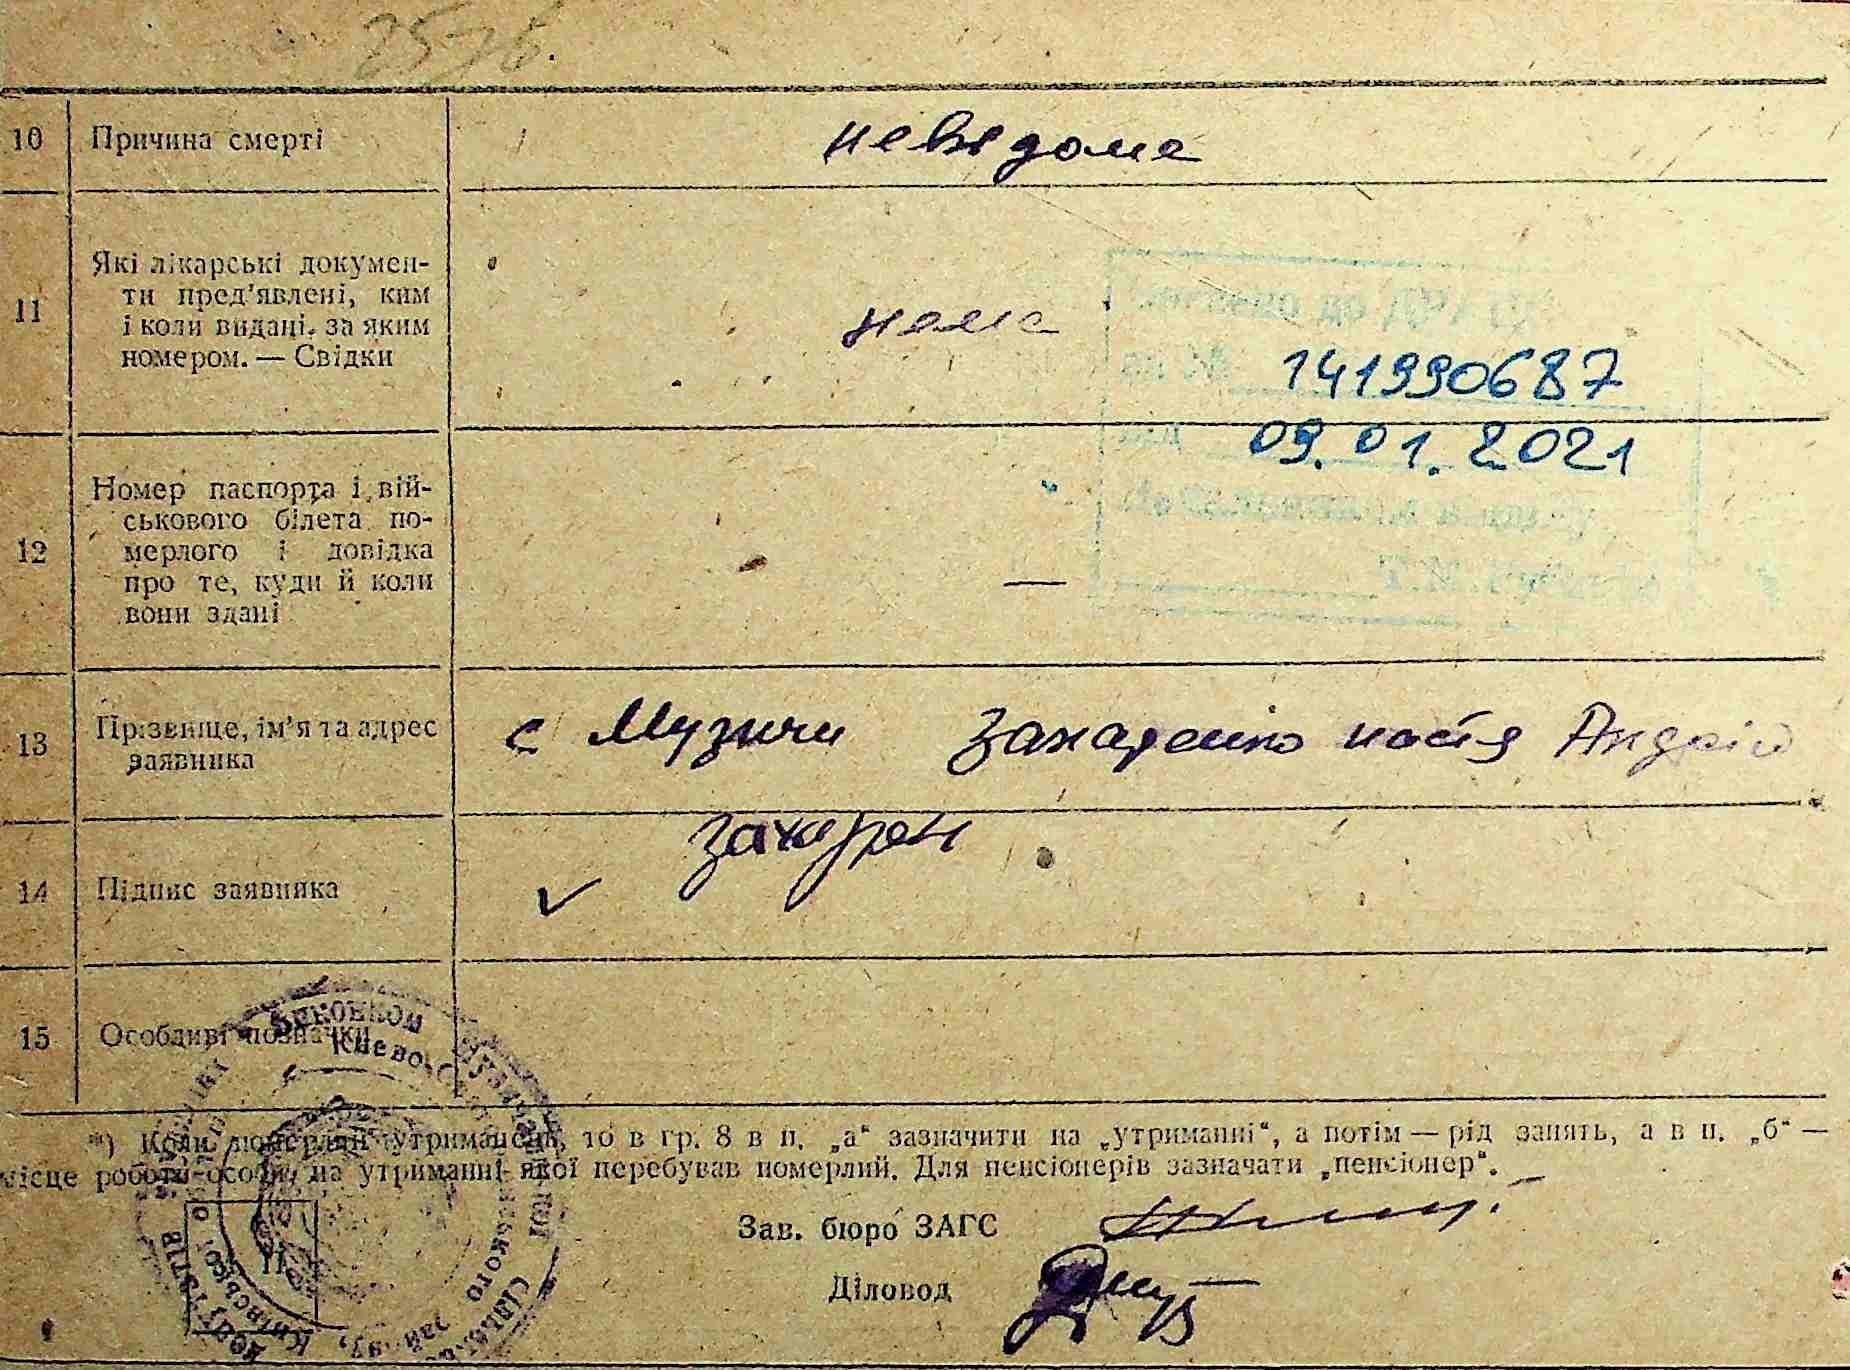 10 Причина смерті невідоме
11 Які лікарські докумен-
ти пред'явлені, ким
і коли видані, за яким
номером. — Свідки
нема
до
141990687
09.01.2021
12 Номер паспорта і вій-
ськового білета по-
мерлого і довідка
про те, куди й коли
вони здані
—
13 Прізвище, ім'я та адрес
заявника
с Музичи Захаренко настя Андрій
14 Підпис заявника
Захарен
15 Особливі позначки
Виконком Музичанської
Києво-
*) Коли померлий утриманець, то в гр. 8 в п. „а“ зазначити на „утриманні“, а потім — рід занять, а в п. „б“ —
місце роботи особи, на утриманні якої перебував померлий. Для пенсіонерів зазначати „пенсіонер“.
Зав. бюро ЗАГС
Діловод